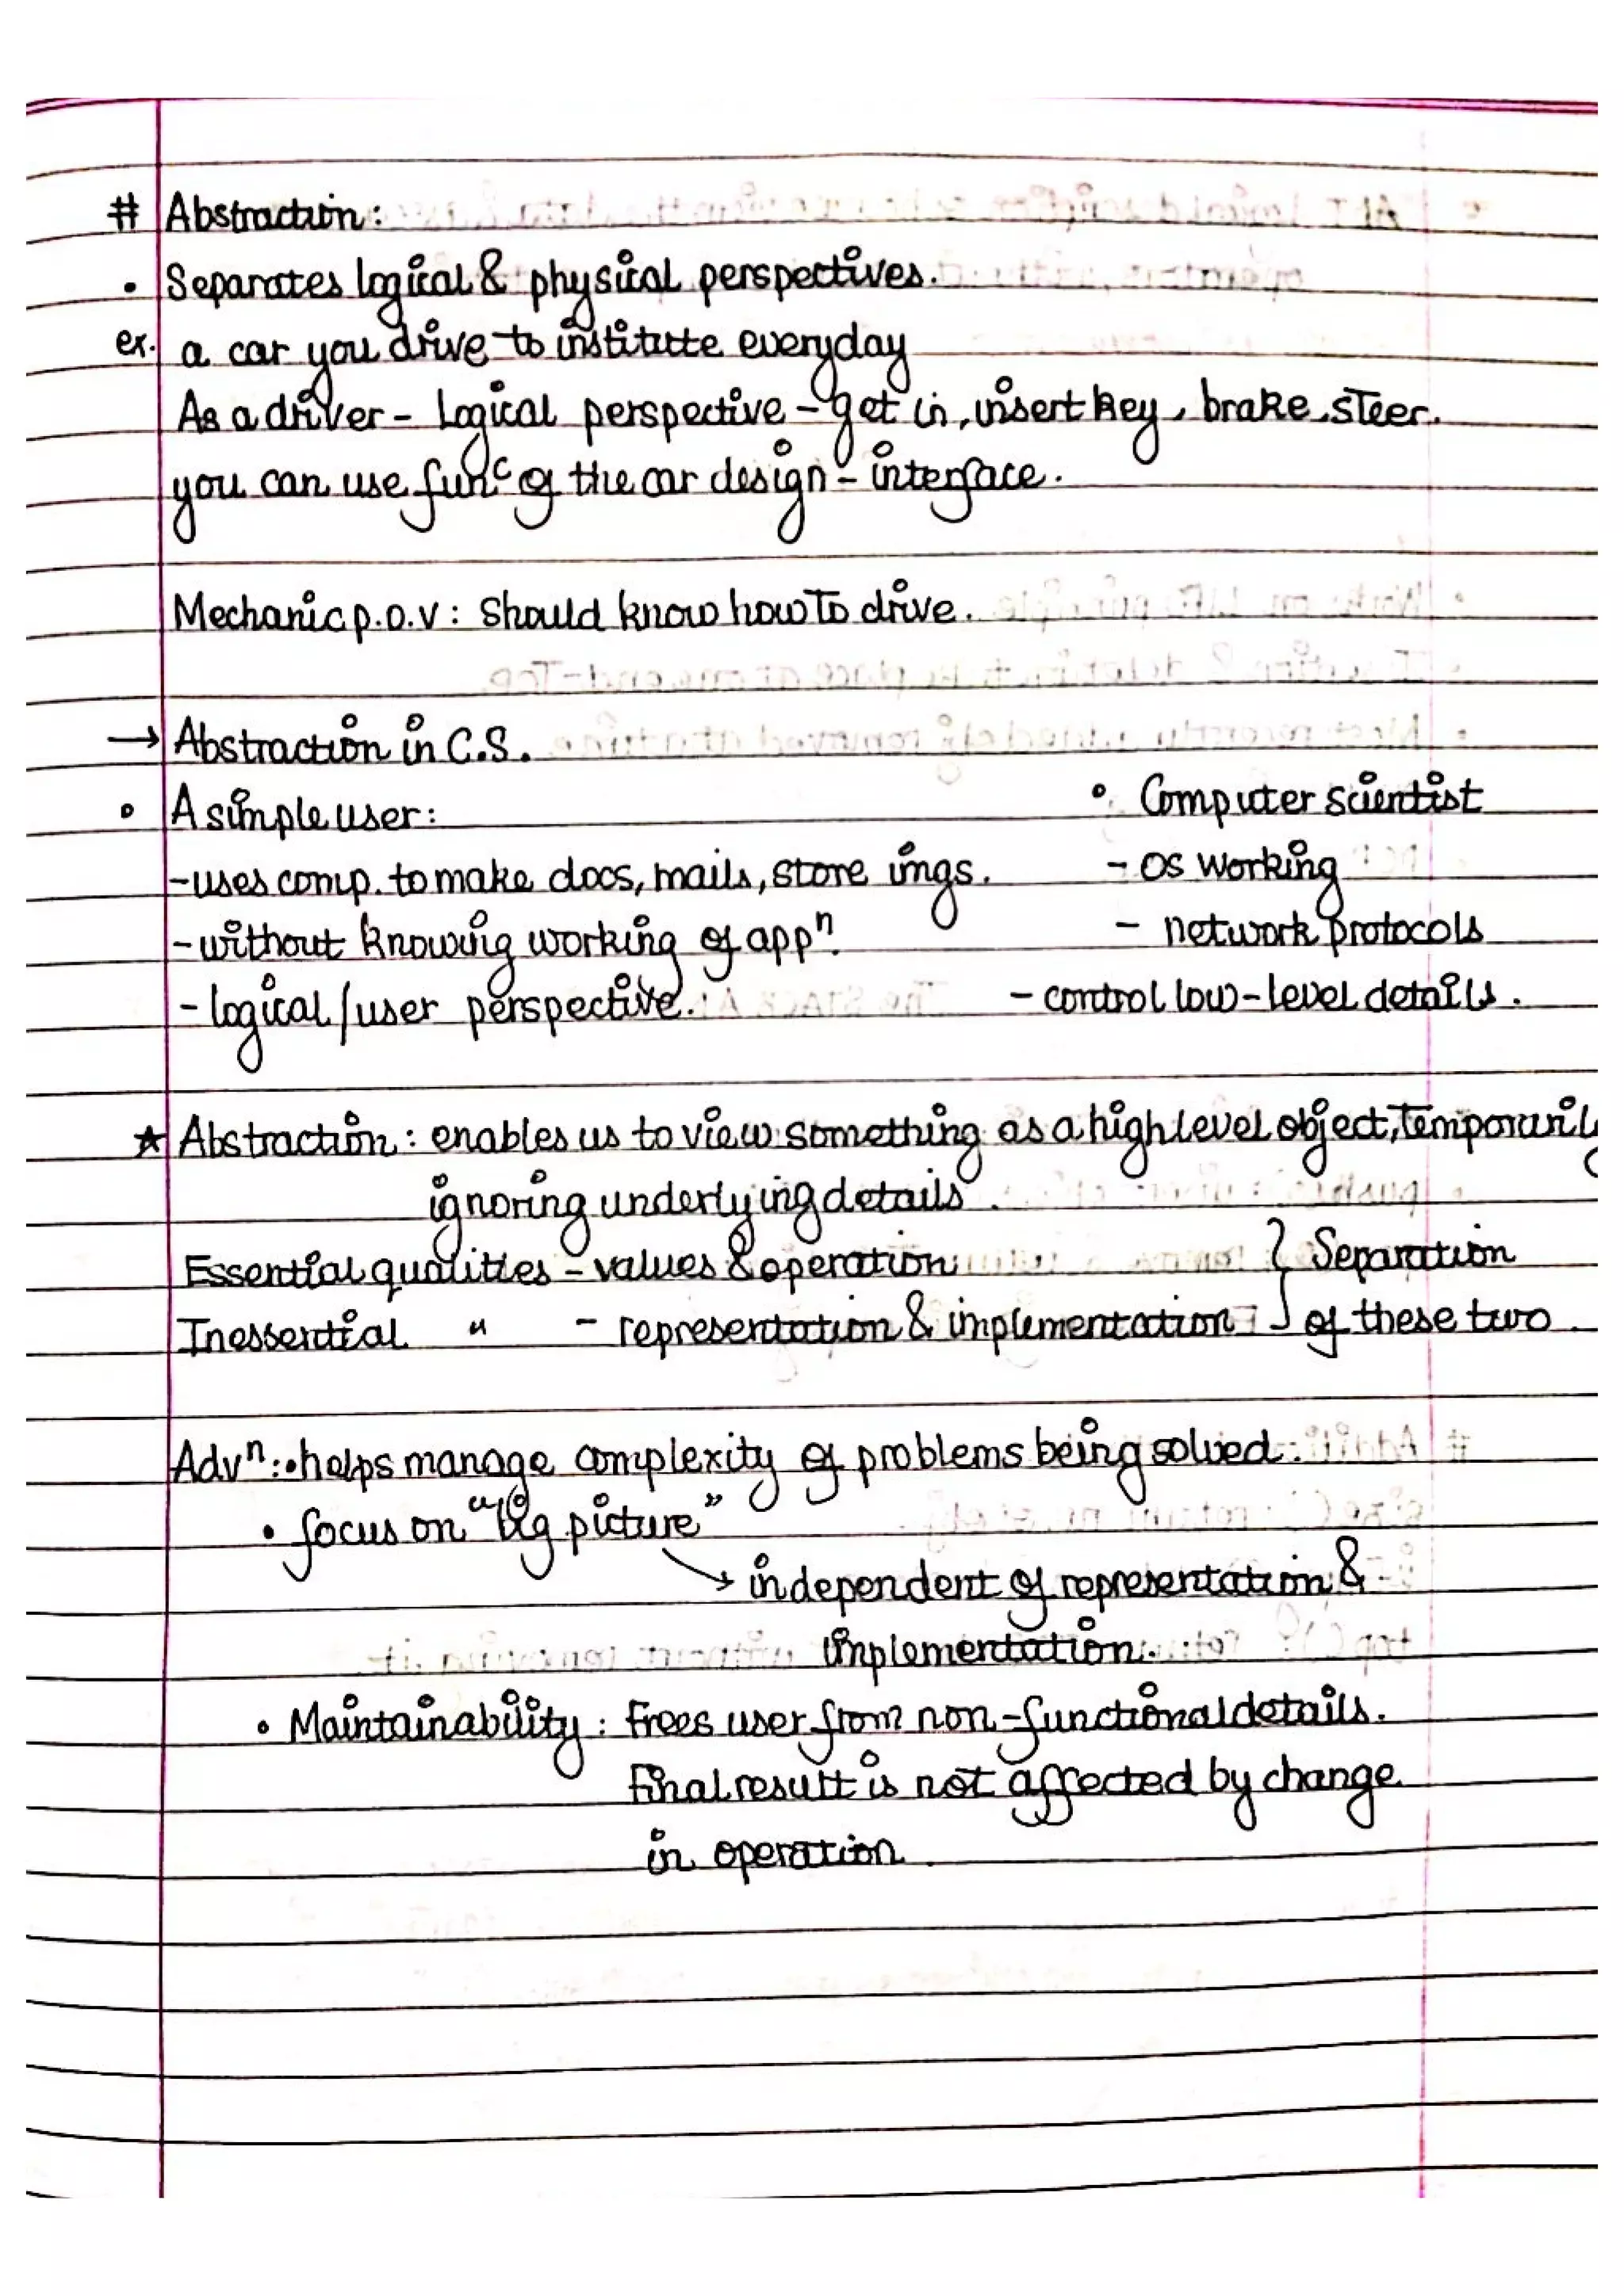 # Abstraction:
• Separates logical & physical perspectives.
ex. a car you drive to institute everyday
As a driver - Logical perspective - get in, insert key, brake, steer.
you can use funᶜ of the car design - interface.
Mechanic p.o.v : Should know how to drive.
→ Abstraction in C.S.
• A simple user:
- uses comp. to make docs, mails, store imgs.
- without knowing working of appⁿ.
- logical/user perspective.
• Computer scientist
- OS working
- network protocols
- control low-level details.
★ Abstraction : enables us to view something as a high level object, temporarily
ignoring underlying details.
Essential qualities - values & operation } Separation
Inessential " - representation & implementation } of these two.
Advⁿ: • helps manage complexity of problems being solved.
• focus on "big picture"
→ independent of representation &
implementation.
• Maintainability : Frees user from non-functional details.
Final result is not affected by change
in operation.